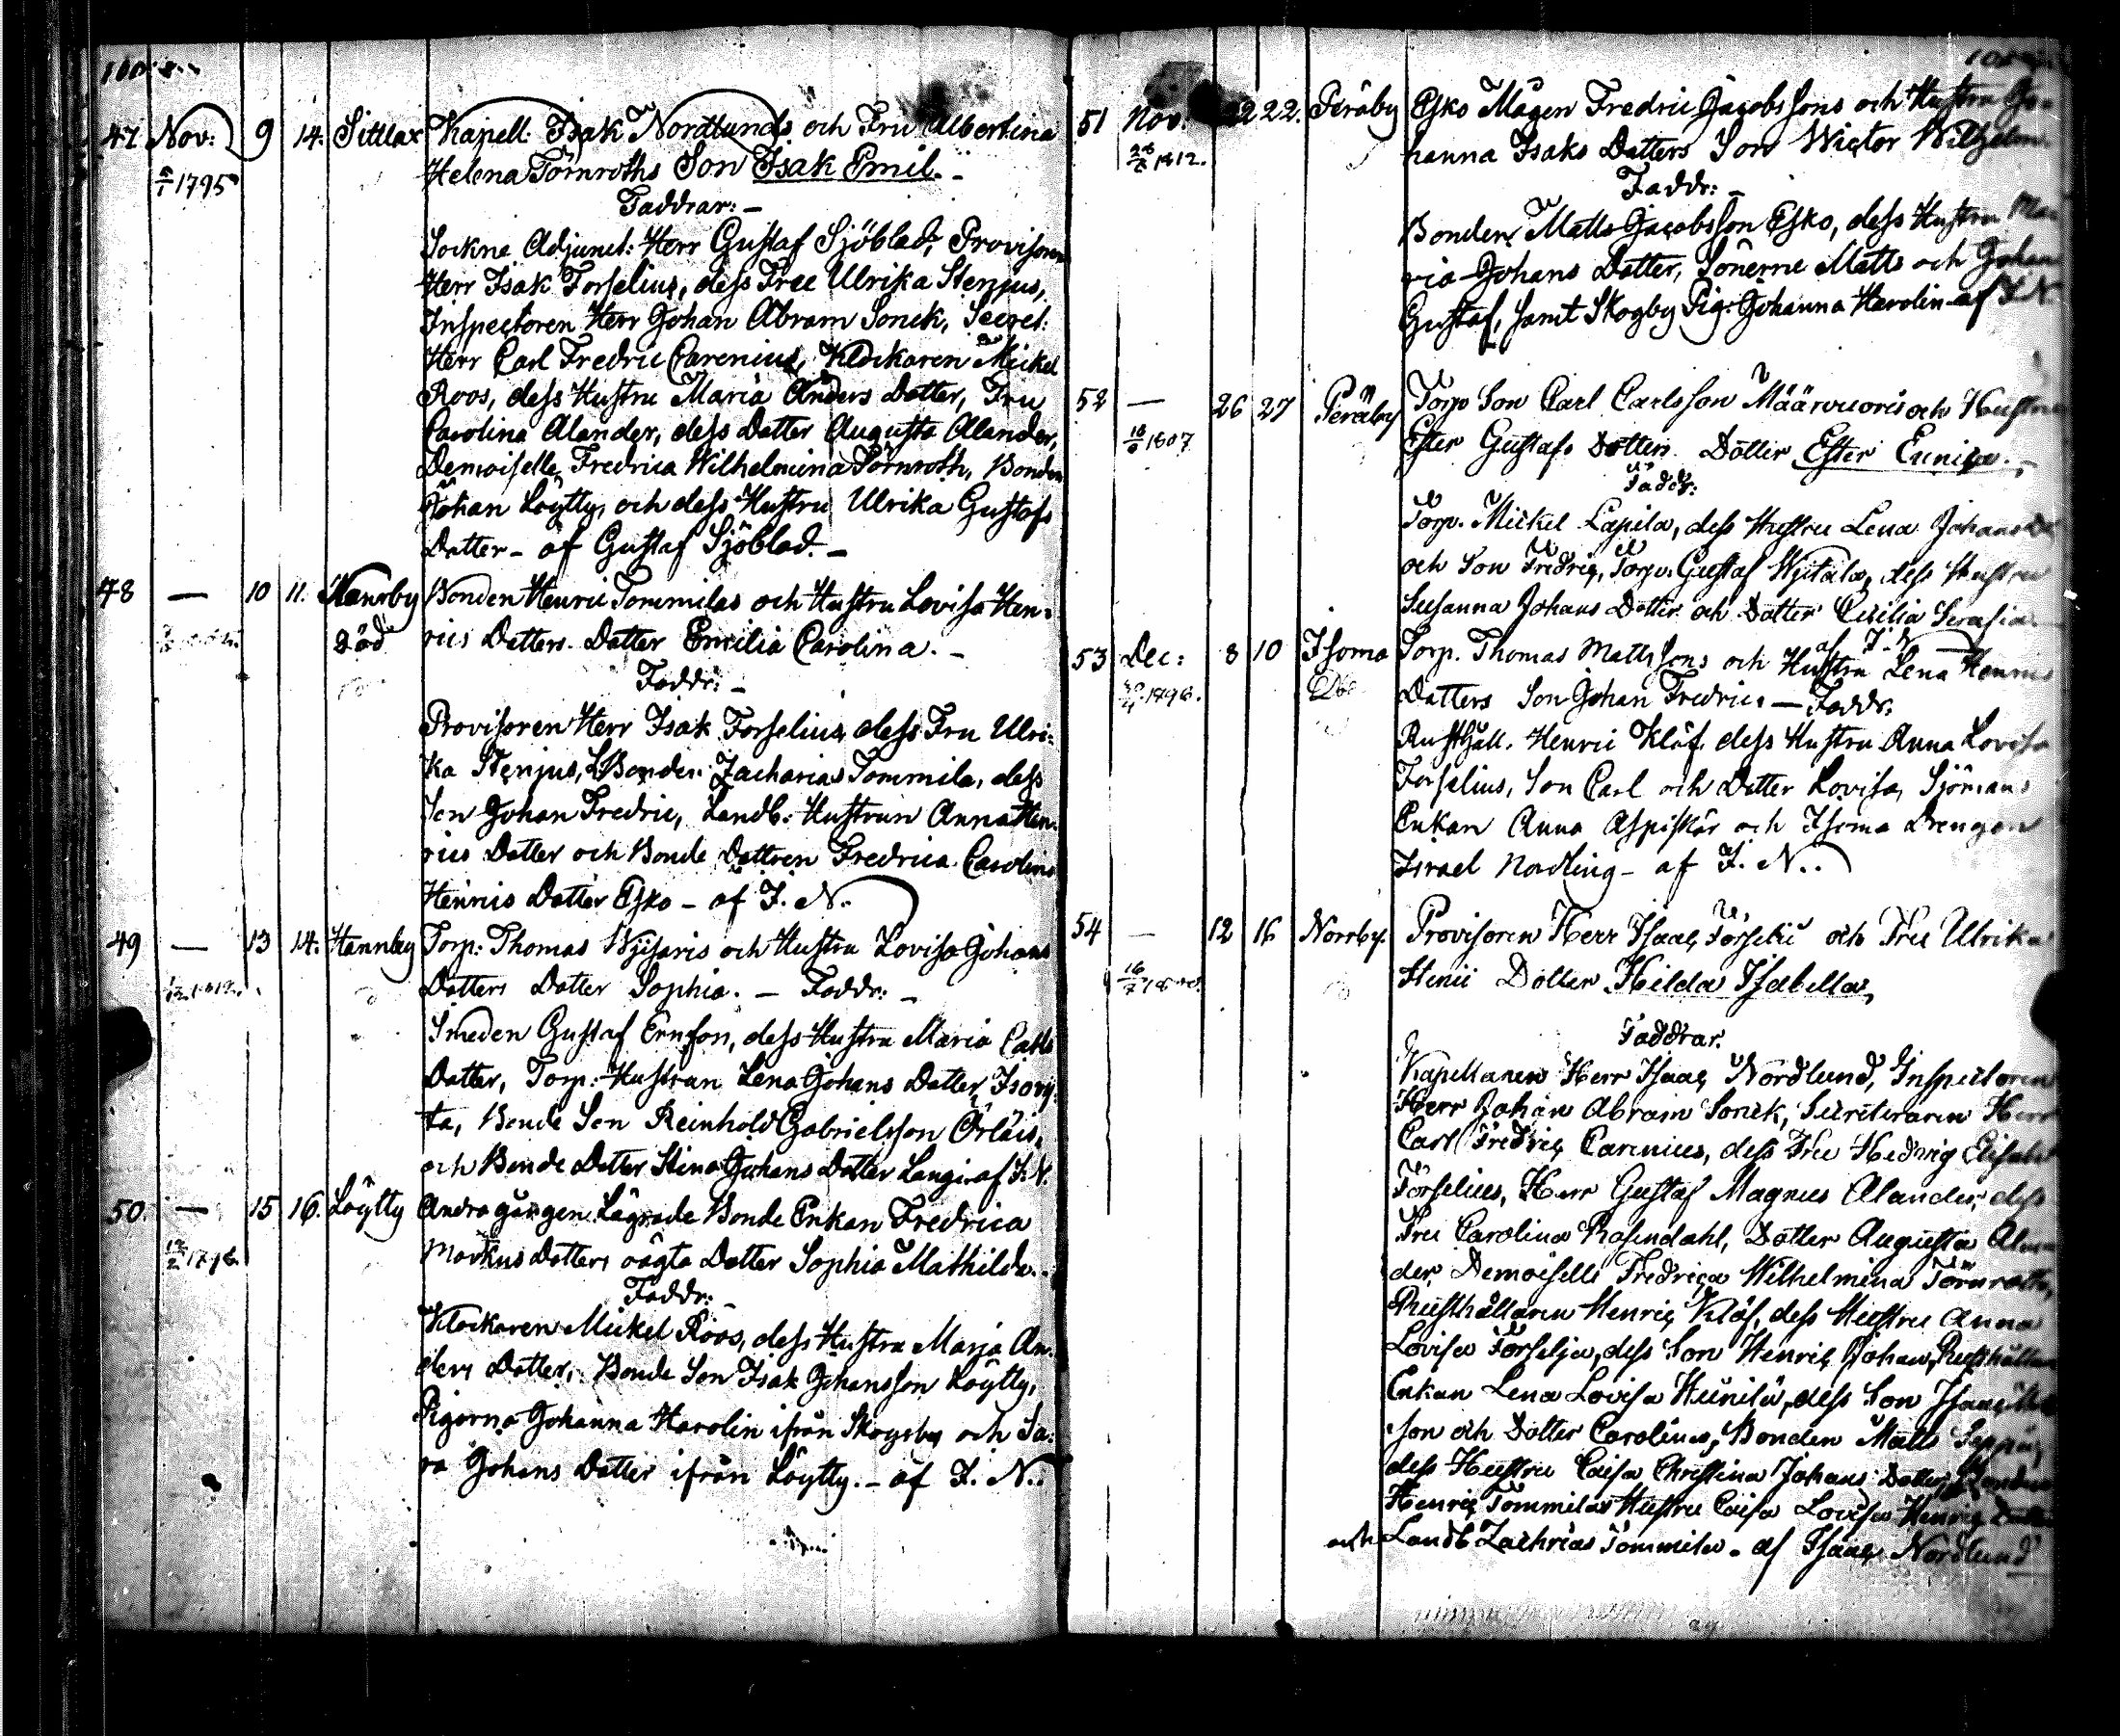 47. Nov: 9 14. Sittlax Kapell. Isak Nordlunds och Fru Albertina
1795 Helena Törnroths Son Isak Emil. -
Faddrar: -
Sockne Adjunct: Herr Gustaf Sjöblad, Provisoren
Herr Isak Forselius, dess Frue Ulrika Stenjus,
Inspectoren Herr Johan Abram Sonck, Secret:
Herr Carl Fredric Carenius, Klockaren Mickel
Roos, dess Hustru Maria Anders Dotter, Fru
Carolina Alander, dess Dotter Augusta Alander,
Demoiselle Fredrica Wilhelmina Törnroth, Bonden
Johan Löytty, och dess Hustru Ulrika Gustafs
Dotter - af Gustaf Sjöblad. -
48 — 10 11. Hannby Bonden Henric Tommilas och Hustru Lovisa Hen-
Död rics Dotters Dotter Emilia Carolina. -
Faddr: -
Provisoren Herr Isak Forselius dess Fru Ulri-
ka Stenjus, Bonden Zacharias Tommila, dess
Son Johan Fredric, Landb: Hustrun Anna Hen-
rics Dotter och Bonde Dottren Fredrica Carolina
Henrics Dotter Esko - af I. N.
49 — 13 14. Hannby Torp: Thomas Wysaris och Hustru Lovisa Johans
Dotters Dotter Sophia. - Faddr: -
Smeden Gustaf Ernson, dess Hustru Maria Carls
Dotter, Torp: Hustrun Lena Johans Dotter
ta, Bonde Son Reinhold Gabrielsson
och Bonde Dotter Stina Johans Dotter Langi af I. N.
50. — 15 16. Löytty Andra gången Lägrade Bonde Enkan Fredrica
Markus Dotters oägta Dotter Sophia Mathilda.
Faddr:
Klockaren Mickel Roos, dess Hustru Maria An-
ders Dotter, Bonde Son Isak Johansson Löytty,
Pigorna Johanna Harolin ifrån Skogsby och Sa-
ra Johans Dotter ifrån Löytty. - af I. N.
51 Nov. 22 22. Peräby Esko Mågen Fredric Jacobssons och Hustru Jo-
1812. hanna Isaks Dotters Son Wictor Wilhelm
Faddr: -
Bonden Matts Jacobsson Esko, dess Hustru Ma-
ria Johans Dotter, Sönerne Matts och Johan
Gustaf, samt Skogby Pig: Johanna Harolin - af I. N.
52 — 26 27 Peräby Torp Son Carl Carlsson Määrvuoris och Hustru
1807 Ester Gustafs Dotters Dotter Ester Eunika. -
Faddr:
Torp. Mickel Lapila, dess Hustru Lena Johans
och Son Fredric, Torp. Gustaf Nystalo, dess Hustru
Susanna Johans Dotter och Dotter Cecilia Serafia
af I. N
53 Dec: 8 10 Isoma Torp. Thomas Mattssons och Hustru Lena Henrics
Dotters Son Johan Fredric. — Faddr:
Rusthåll. Henric Kläf, dess Hustru Anna Lovisa
Forselius, Son Carl och Dotter Lovisa, Sjömans
Enkan Anna Aspiskär och Isoma Drengen
Israel Nordling - af I. N.
54 — 12 16 Norrby. Provisoren Herr Isaac Forselii och Frue Ulrika
Stenii Dotter Hilda Isabella,
Faddrar.
Kapellanen Herr Isaac Nordlund, Inspectoren
Herr Johan Abram Sonck, Secreteraren Herr
Carl Fredric Carenius, dess Frue Hedvig Elisabet
Forselius, Herr Gustaf Magnus Alander, dess
Frue Carolina Rosendahl, Dotter Augusta Alan-
der, Demoiselle Fredrica Wilhelmina Törnroth,
Rusthållaren Henric Kläf, dess Hustru Anna
Lovisa Forselia, dess Son Henric Johan, Rusthållare
Enkan Lena Lovisa dess Son Isaac
son och Dotter Carolina, Bonden Matts
dess Hustru Caisa Christina Johans Dotter, Bonden
Henric Tommilas Hustru Caisa Lovisa Henrics Dotter
och Landb Zachrias Tommila - af Isaac Nordlund